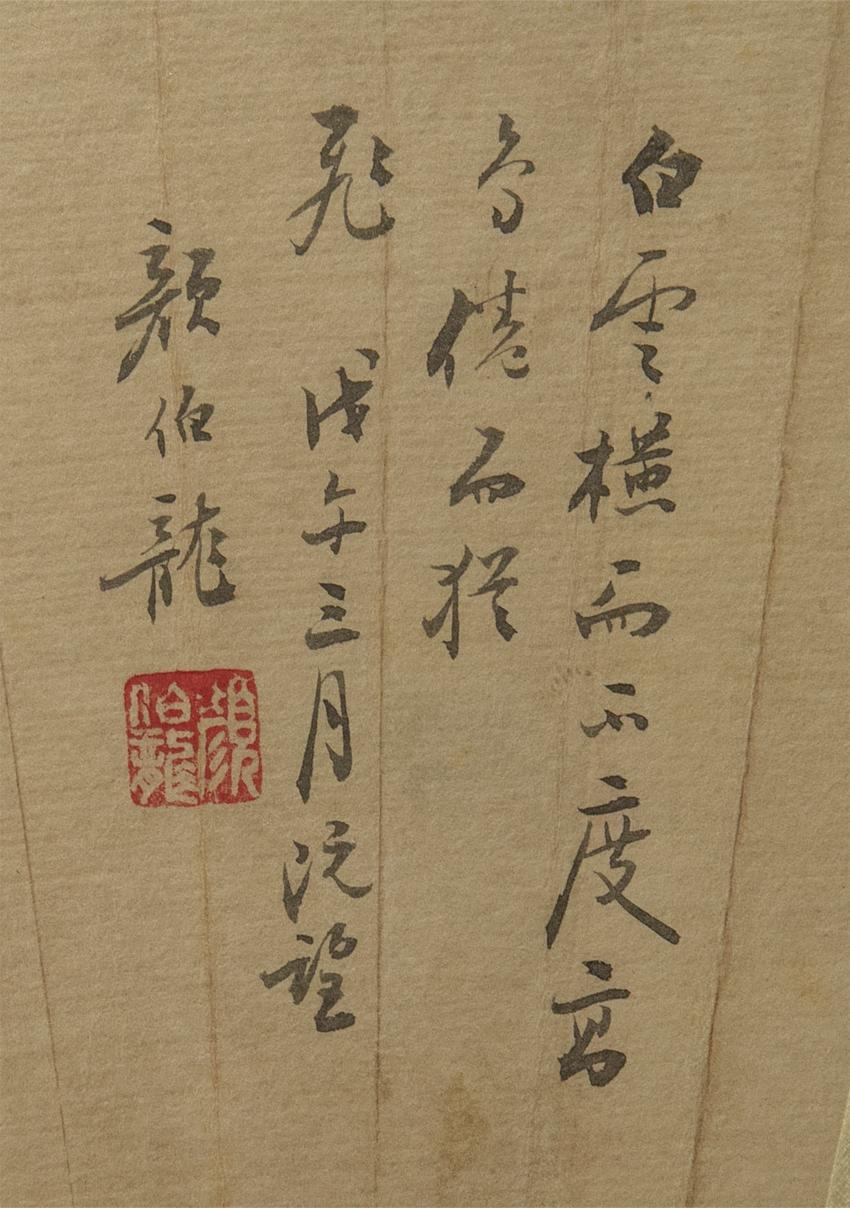 白雲橫而不度高
鳥倦而猶
飛 戊午三月既望
顏伯龍
顏伯龍